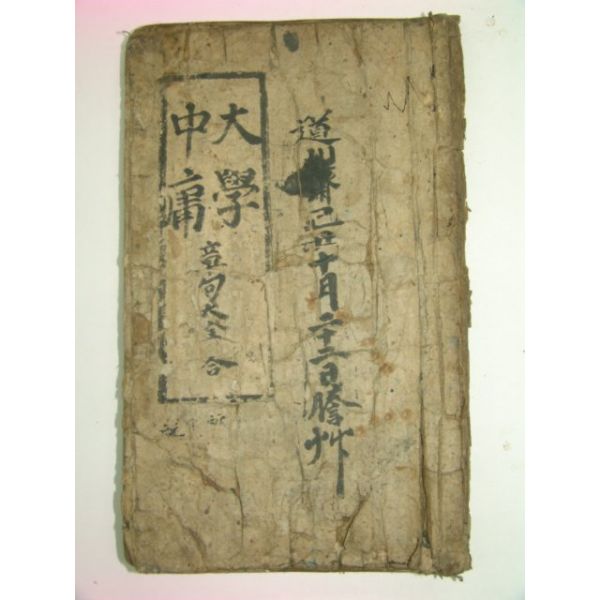 道 己丑十月二十二日謄艸
大學
中庸
章句大全 合